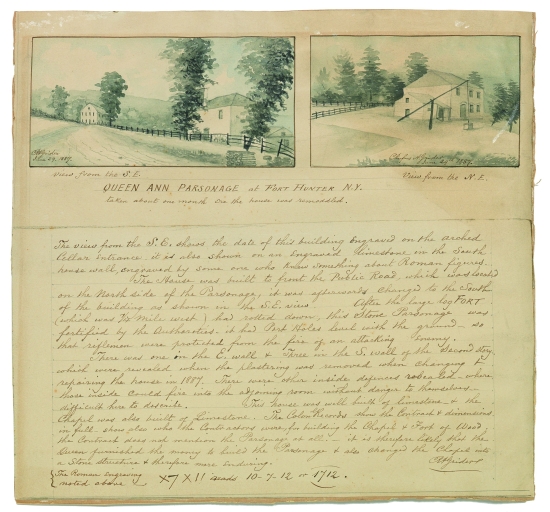 RAGrider
Nov 29, 1887.
Rufus A Grider
1887.
View from the S.E.
View from the N.E.
QUEEN ANN, PARSONAGE at FORT HUNTER N.Y.
taken about one month the house was remodelled.
The view from the S.E. shows the date of this building Engraved on the arched
Cellar Entrance, it is also shown on an Engraved limestone in the South
house wall, engraved by some one who knew something about Roman figures.
The House was built to front the Public Road, which was located
on the North side of the Parsonage, it was afterwards changed to the South
of the building as shown in the S.E. view. After the large log FORT
(which was ½ Mile west) had rotted down, this Stone Parsonage was
fortified by the Authorities. it had Port Holes level with the ground so
that riflemen were protected from the fire of an attacking Enemy.
There was one in the E. wall & Three in the S. wall of the Second story,
which were revealed when the plastering was removed when changing &
repairing the house in 1887. There were other inside defences revealed where
those inside Could fire into the adjoining room without danger to themselves
difficult here to describe. This house was well built of limestone & the
Chapel was also built of Limestone. The Colon Records show the Contract & dimensions
in full. show also who the Contractors were, for building the Chapel & Fort of Wood,
the Contract does not mention the Parsonage at all. it is therefore likely that the
Queen furnished the money to build the Parsonage & also changed the Chapel into
a Stone Structure & therefore more enduring. RAGrider
The Roman engraving
noted above X7 XII reads 10-7-12 or 1712.